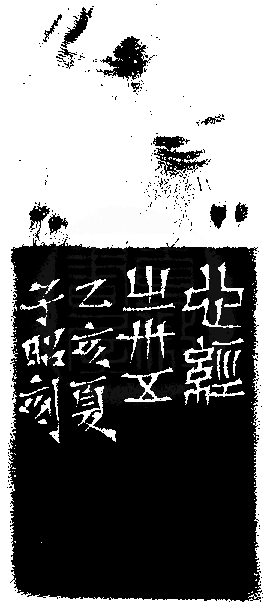 心經
之卅五
乙亥夏
子昭刻